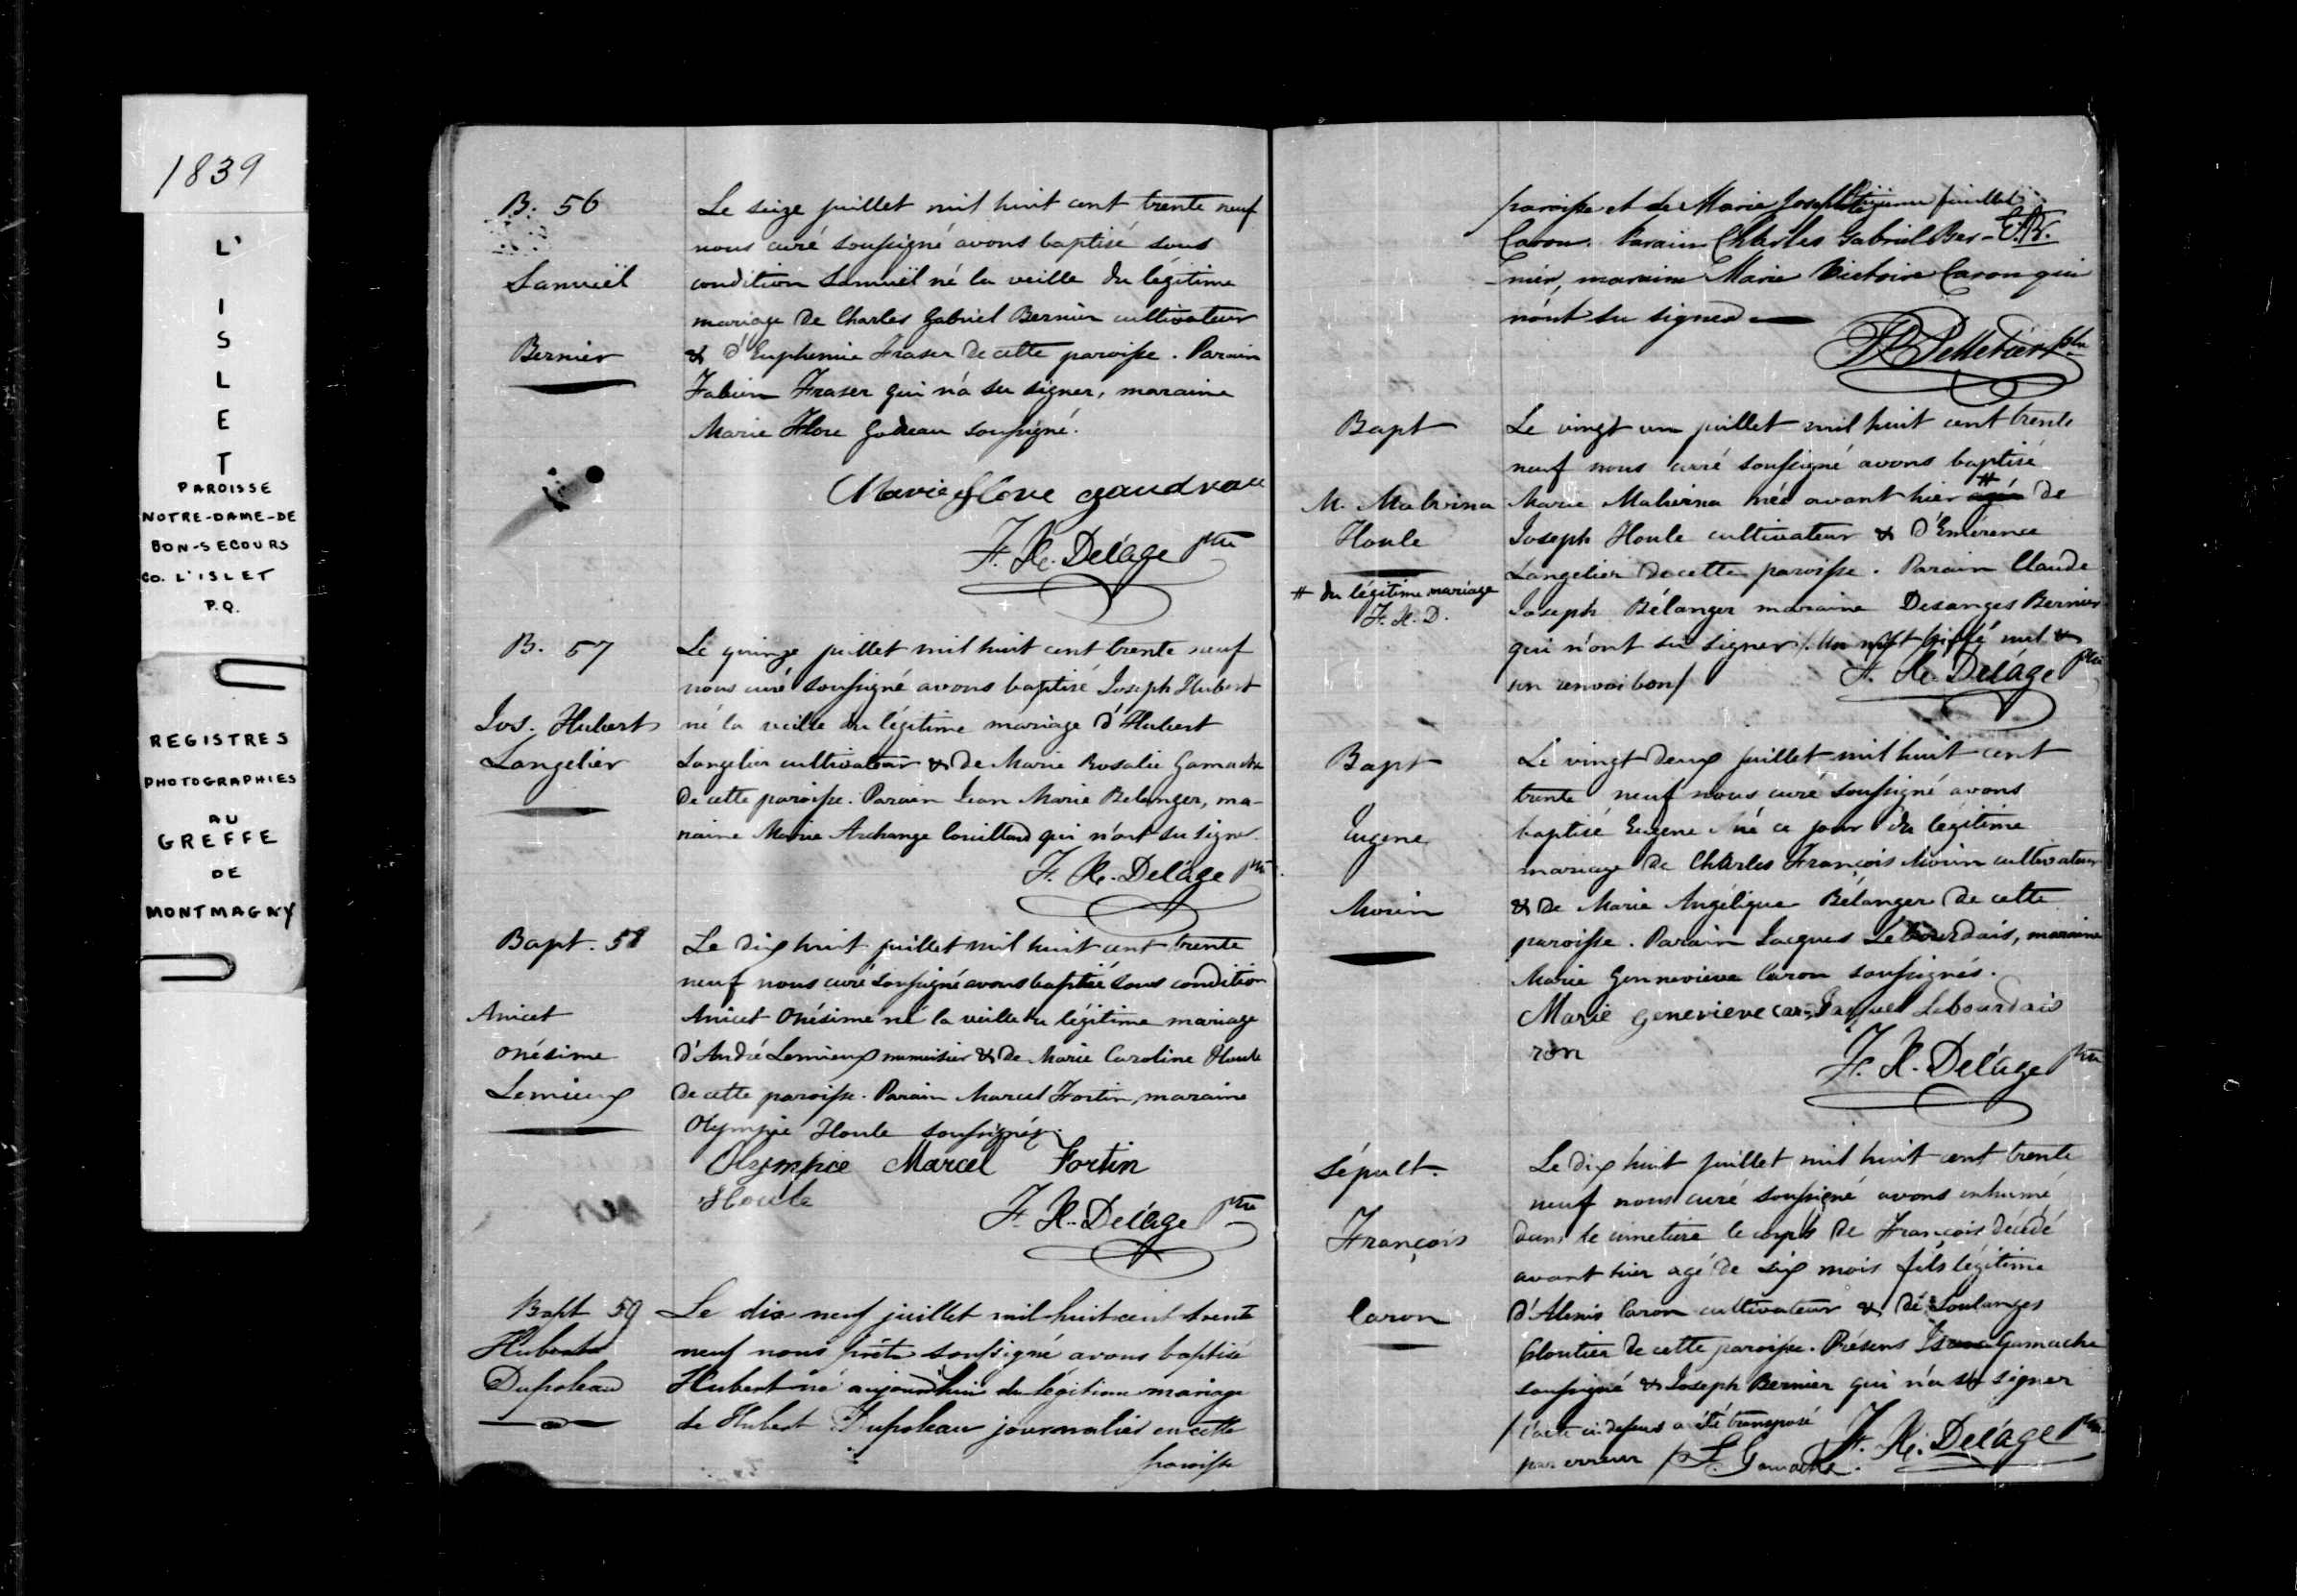 1839
L'
I
S
L
E
T
PAROISSE
NOTRE-DAME-DE
BON-SECOURS
CO. L'ISLET
P.Q.
REGISTRES
PHOTOGRAPHIES
AU
GREFFE
DE
MONTMAGNY
B. 56
Samuël
Bernier
Le seize juillet mil huit cent trente neuf
nous curé soussigné avons baptisé sous
condition Samuël né la veille du légitime
mariage de Charles Gabriel Bernier cultivateur
& d'Euphemie Fraser de cette paroisse. Parain
Fabien Fraser qui n'a su signer, maraine
Marie Flore Godreau soussigné.
Marie flore gaudrau
F. X. Delâge ptre
B. 57
Jos. Hubert
Langelier
Le quinze juillet mil huit cent trente neuf
nous curé soussigné avons baptisé Joseph Hubert
né la veille du légitime mariage d'Hubert
Langelier cultivateur & de Marie Rosalie Gamache
de cette paroisse. Parain Jean Marie Belanger, ma-
raine Marie Archange Couillard qui n'ont su signer.
F. X. Delâge ptre
Bapt. 58
Anicet
Onésime
Lemieux
Le dix huit juillet mil huit cent trente
neuf nous curé soussigné avons baptisé sous condition
Anicet Onésime né la veille du légitime mariage
d'André Lemieux menuisier & de Marie Caroline Houle
de cette paroisse. Parain Marcel Fortin, maraine
Olympie Houle soussignés.
Olympie Marcel Fortin
Houle
F. X. Delâge ptre
Bapt 59
Hubert
Dupoleau
Le dix neuf juillet mil huit cent trente
neuf nous prêtre soussigné avons baptisé
Hubert né aujourd'hui du légitime mariage
de Hubert Dupoleau journalier en cette
paroisse
paroisse et de Marie Joseph juillet
Caron. Parain Charles Gabriel Ber-
nier, maraine Marie Victoire Caron qui
n'ont su signer
Pelletier ptre
Bapt
M. Malvina
Houle
# du légitime mariage
F. X. D.
Le vingt un juillet mil huit cent trente
neuf nous curé soussigné avons baptisé
Marie Malvina née avant hier # de
Joseph Houle cultivateur & d'Emérence
Langelier de cette paroisse. Parain Claude
Joseph Bélanger maraine Desanges Bernier
qui n'ont su signer /. Un mot biffé nul &
un renvoi bon/
F. X. Delâge ptre
Bapt
Eugene
Morin
Le vingt deux juillet mil huit cent
trente neuf nous curé soussigné avons
baptisé Eugene né ce jour du légitime
mariage de Charles François Morin cultivateur
& de Marie Angélique Bélanger de cette
paroisse. Parain Jacques Lebourdais, maraine
Marie Gennevieve Caron soussignés.
Marie genevieve ca- Jacques Lebourdais
ron
F. X. Delâge ptre
Sépult.
François
Caron
Le dix huit juillet mil huit cent trente
neuf nous curé soussigné avons inhumé
dans le cimetière le corps de François décédé
avant hier agé de six mois fils légitime
d'Alexis Caron cultivateur & de Soulanges
Cloutier de cette paroisse. Présens Gamache
soussigné & Joseph Bernier qui n'a su signer
/ l'acte ci dessus a été transposé
par erreur / Gamache.
F. X. Delâge ptre